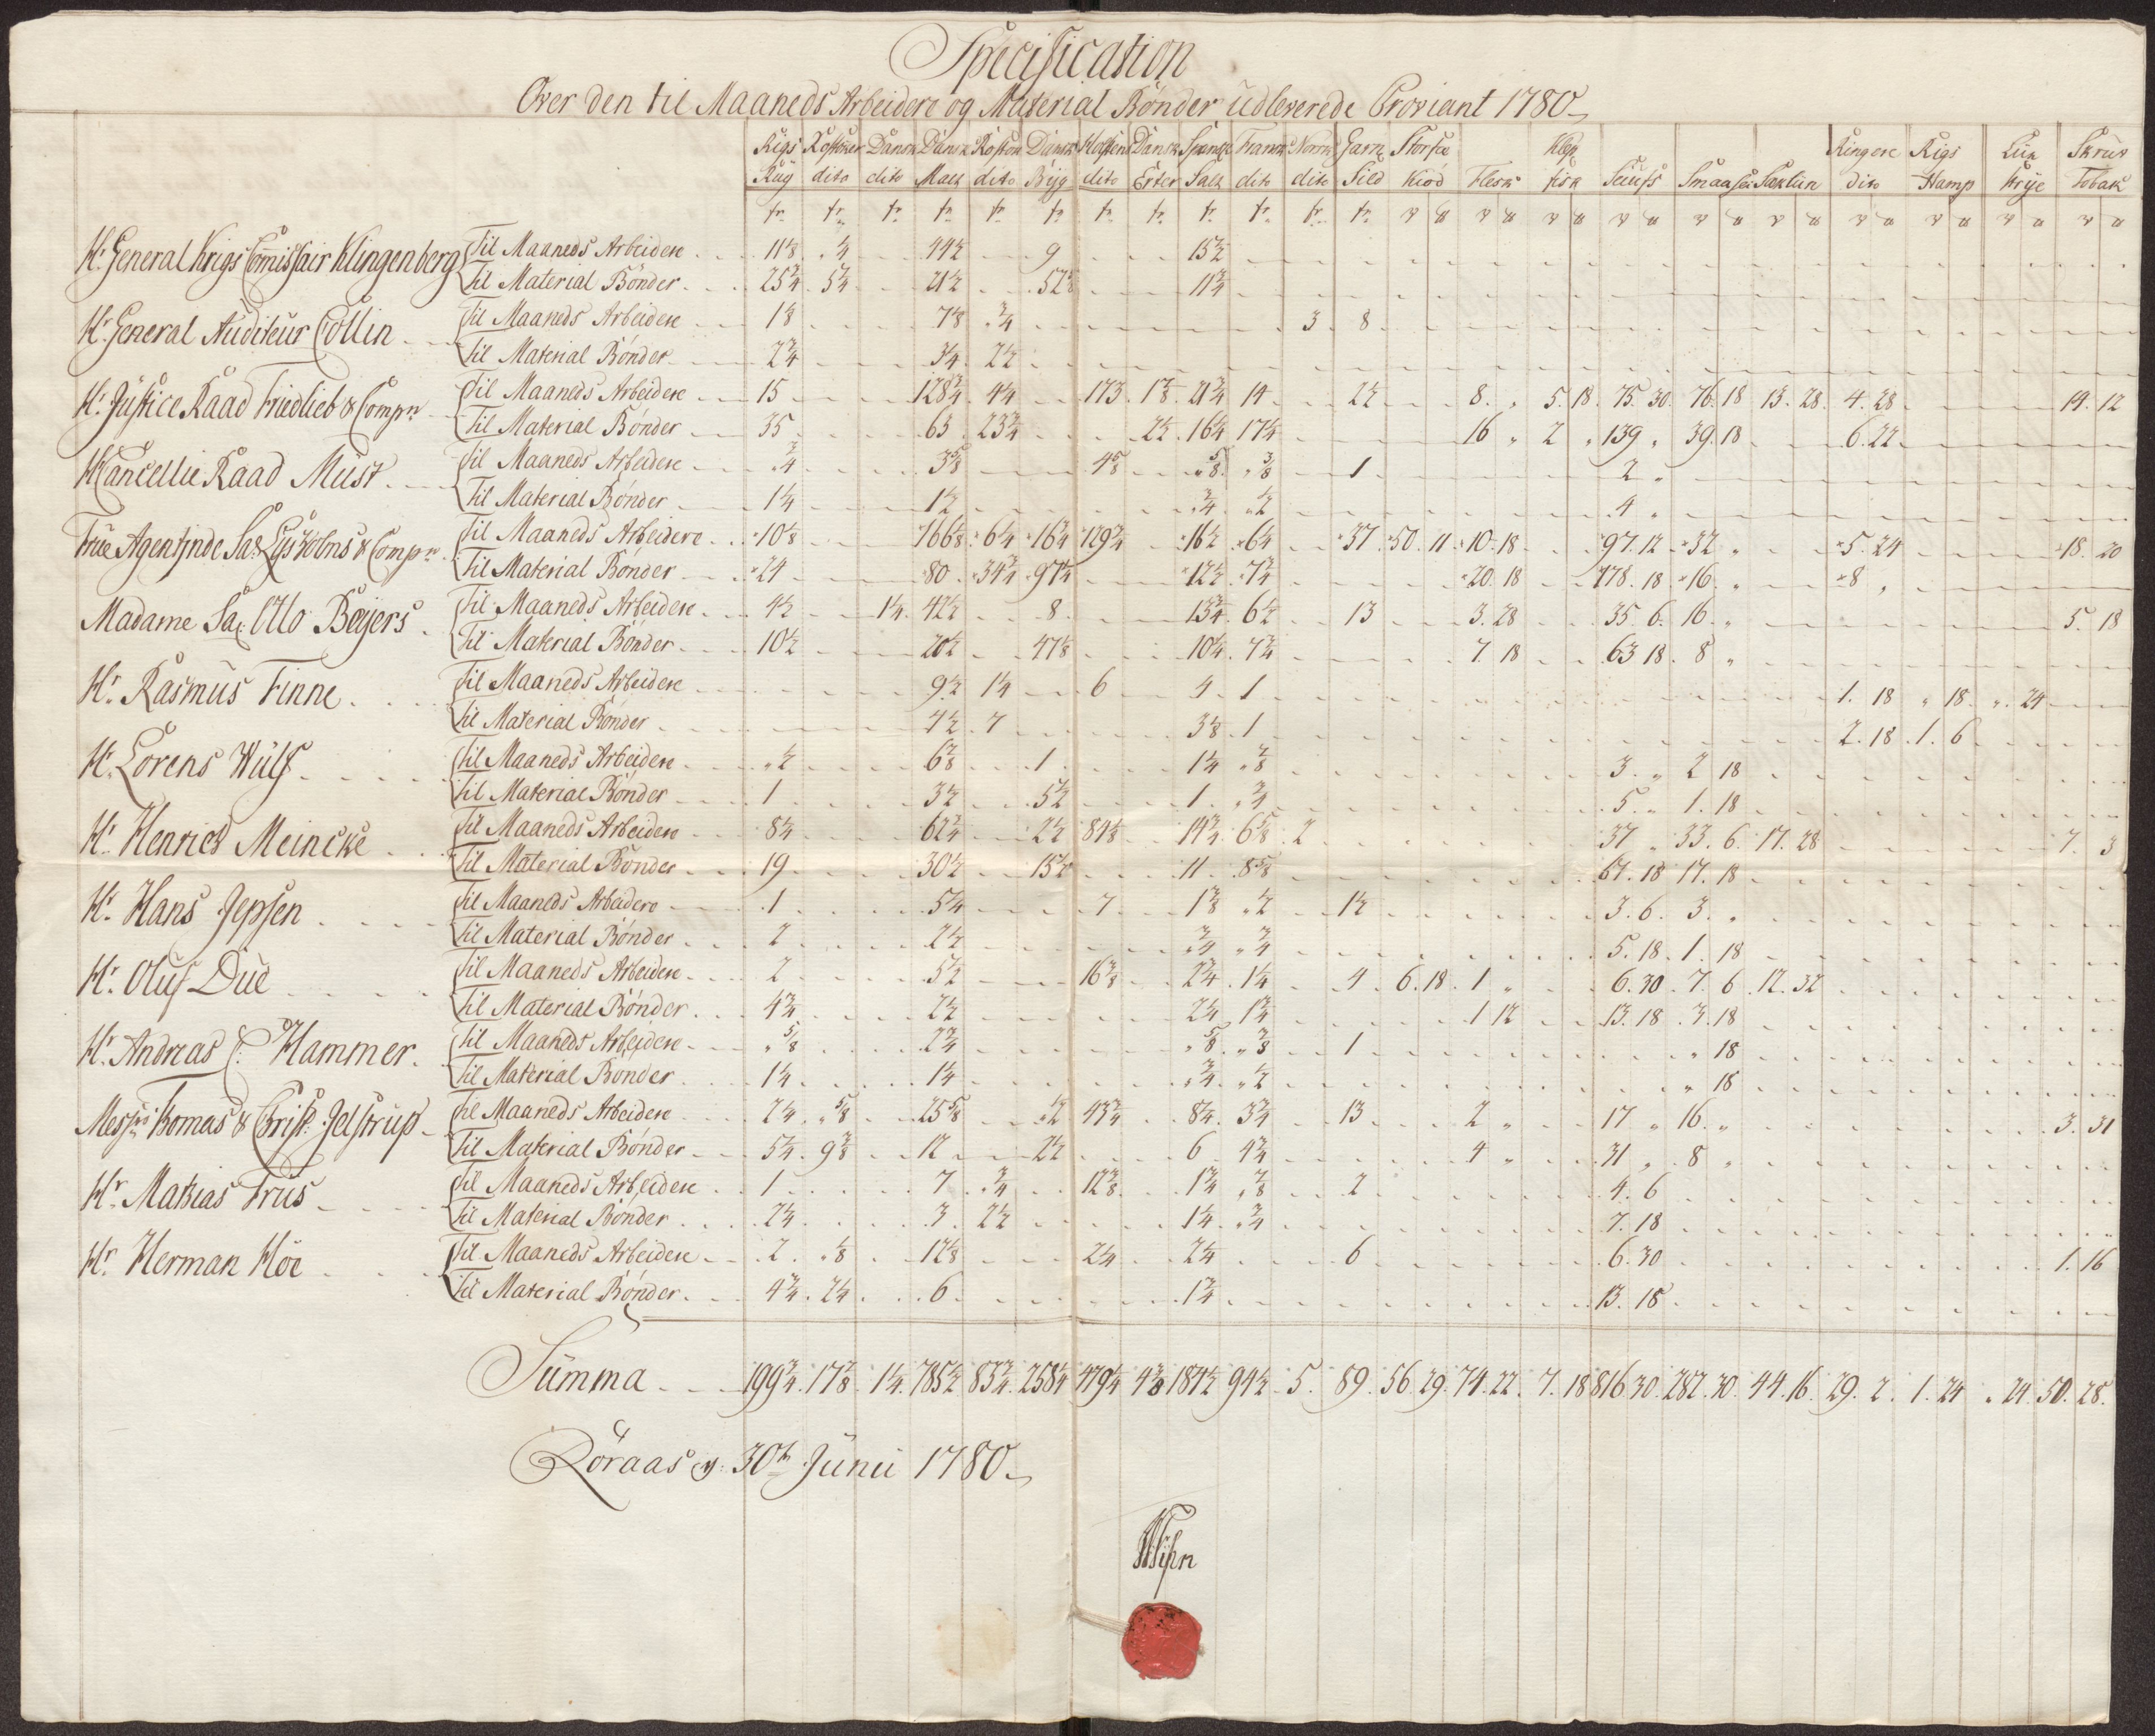 Specification
Over den til Maaneds Arbeidere og Material Bönder udleverede Proviant 1780
Rigs Rostoker Dansk Dansk Rostok Dansk Holsten Dansk Spansk Fransk Norsk Garn Storsei Klep Ringere Rigs Liin Skruv
Rug dito dito Malt dito Byg dito Erter Salt dito dito Sild Kiöd Flesk fisk Seiufs Smaasei Saklun dito Hamp Tobak
tr. tr. tr. tr. tr. tr. tr. tr. tr. tr. tr. tr.
Hr. General Krigs Commissair Klingenberg Til Maaneds Arbeidere 11 1/8 44 1/2 9 15 1/2
Til Material Bönder 25 3/4 5 1/4 21 1/2 11 3/4
Hr. General Auditeur Collin Til Maaneds Arbeidere 1 1/8 7 1/8 3/4 3 8
Til Material Bönder 2 3/4 2 1/2
Hr. Justice Raad Friedlieb & Compn Til Maaneds Arbeidere 15 128 3/4 4 1/4 173 1 7/8 21 3/4 14 2 1/2 8 „ 5. 18. 75. 30. 76. 18 13. 28. 4. 28 14. 12
Til Material Bönder 35 63 23 3/4 2 1/2 16 1/4 17 1/4 16 „ 2 „ 139 „ 39. 18 6. 22
Cancellie Raad Must Til Maaneds Arbeidere 3/4 3 5/8 4 5/8 „ 5/8 „ 3/8 1 2 „
Til Material Bönder 1 1/4 1 1/2 3/4 „ 1/2 4 „
Frue Agentinde Sal. Lysholms & Compn Til Maaneds Arbeidere 10 1/8 166 1/8 6 1/4 16 1/4 129 3/4 16 1/2 6 1/4 37 50. 11 10. 18 97. 12 32 „ 5. 24 18. 20
Til Material Bönder 24 80 34 3/4 97 1/4 12 1/2 7 3/4 20. 18 178. 18 16 „ 8 „
Madame Sal. Otto Beyers Til Maaneds Arbeidere 4 1/2 1 1/4 42 1/2 8 13 3/4 6 1/2 13 3. 28 35. 6. 16 „ 5. 18
Til Material Bönder 10 1/2 20 1/2 47 1/8 10 1/4 7 3/4 7. 18 63. 18. 8 „
Hr. Rasmus Finne Til Maaneds Arbeidere 9 1/2 1 1/4 6 4 1 1. 18 „ 18 „ 24
Til Material Bönder 4 1/2 7 3 1/8 1 2. 18. 1. 6
Hr. Lorens Wulf Til Maaneds Arbeidere „ 1/2 1 1 1/4 3 „ 2 18
Til Material Bönder 1 3 1/2 5 1/2 1 „ 3/4 5 „ 1. 18
Hr. Henrick Meincke Til Maaneds Arbeidere 8 1/4 62 3/4 2 1/2 84 1/8 14 3/4 6 5/8 2 37 „ 33. 6. 17. 28 7. 3
Til Material Bönder 19 30 1/2 15 1/2 11 67. 18 17. 18
Hr. Hans Jepsen Til Maaneds Arbeidere 1 5 1/4 7 „ 1/2 1 1/2 3. 6. 3. „
Til Material Bönder 2 2 1/2 „ 3/4 „ 3/4 5. 18. 1. 18
Hr. Oluf Due Til Maaneds Arbeidere 2 5 1/2 2 3/4 1 1/4 4 6. 18. 1 „ 6. 30. 7. 6. 12. 32
Til Material Bönder 4 3/4 2 1/2 2 1/4 1 3/4 1 12 13. 18. 3. 18
Hr. Andreas C. Hammer Til Maaneds Arbeidere „ 5/8 2 3/4 „ 5/8 „ 3/8 1 „ 18
Til Material Bönder 1 1/4 1 1/4 „ 3/4 „ 1/2 „ 18
Messrs Thomas & Christ. Jelstrup Til Maaneds Arbeidere 2 1/4 „ 5/8 25 5/8 „ 1/2 43 3/4 8 1/4 3 3/4 13 2 „ 17 „ 16 „ 3. 31
Til Material Bönder 5 1/4 12 2 1/2 6 4 3/4 4 „ 31 „ 8 „
Hr. Mathias Friis Til Maaneds Arbeidere 1 7 „ 3/4 1 3/4 „ 7/8 2 4. 6
Til Material Bönder 2 1/4 3 2 1/2 1 1/4 „ 3/4 7. 18
Hr. Herman Höe Til Maaneds Arbeidere 2 „ 1/8 12 1/8 2 1/4 2 1/4 6 6. 30 1. 16
Til Material Bönder 4 3/4 2 1/4 6 1 3/4 13. 18
Summa 199 3/4 17 7/8 1 1/4 785 1/2 83 3/4 258 1/4 479 1/4 4 3/8 187 1/2 94 1/2 5 89 56. 29. 74. 22. 7. 18 816 30. 282. 30. 44. 16. 29. 2. 1. 24 „ 24. 50. 28.
Röraas d. 30te Junii 1780